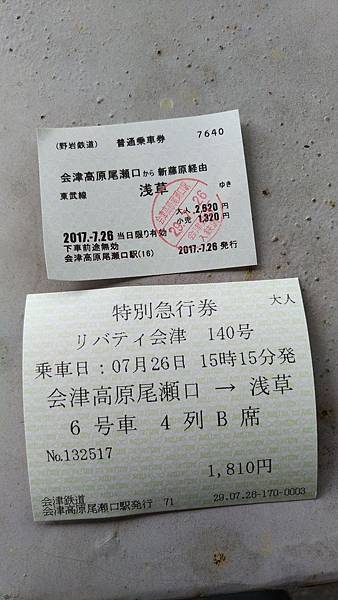 (野岩鉄道) 普通乗車券 7640
会津高原尾瀬口から 新藤原経由
東武線 浅草 ゆき
大人 2,620円
小児 1,320円
2017.-7.26 当日限り有効
下車前途無効
会津高原尾瀬口駅(16) 2017.-7.26 発行
特別急行券 大人
リバティ会津 140号
乗車日：07月26日 15時15分発
会津高原尾瀬口 → 浅草
6 号車 4 列 B 席
No.132517
1,810円
会津鉄道
会津高原尾瀬口駅発行 71 29.07.26-170-0003